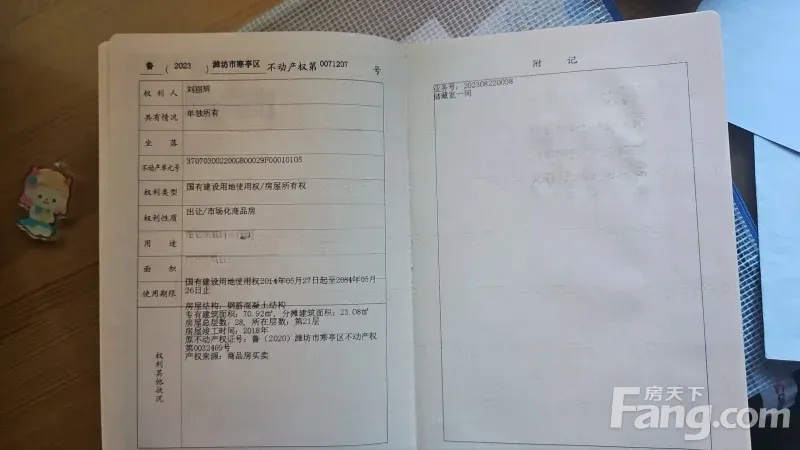 鲁 ( 2023 ) 潍坊市寒亭区 不动产权第 0071207 号
权利人
共有情况 单独所有
坐落
不动产单元号 370703002200GB00029F00010105
权利类型 国有建设用地使用权/房屋所有权
权利性质 出让/市场化商品房
用途
面积
使用期限 国有建设用地使用权2014年05月27日起至2084年05月
26日止
权利其他状况
房屋结构：钢筋混凝土结构
专有建筑面积：70.92㎡，分摊建筑面积：23.08㎡
房屋总层数：28，所在层数：第21层
房屋竣工时间：2018年
原不动产权证号：鲁（2020）潍坊市寒亭区不动产权
第0032469号
产权来源：商品房买卖
附记
业务号：202308220038
储藏室一间
房天下
Fang.com